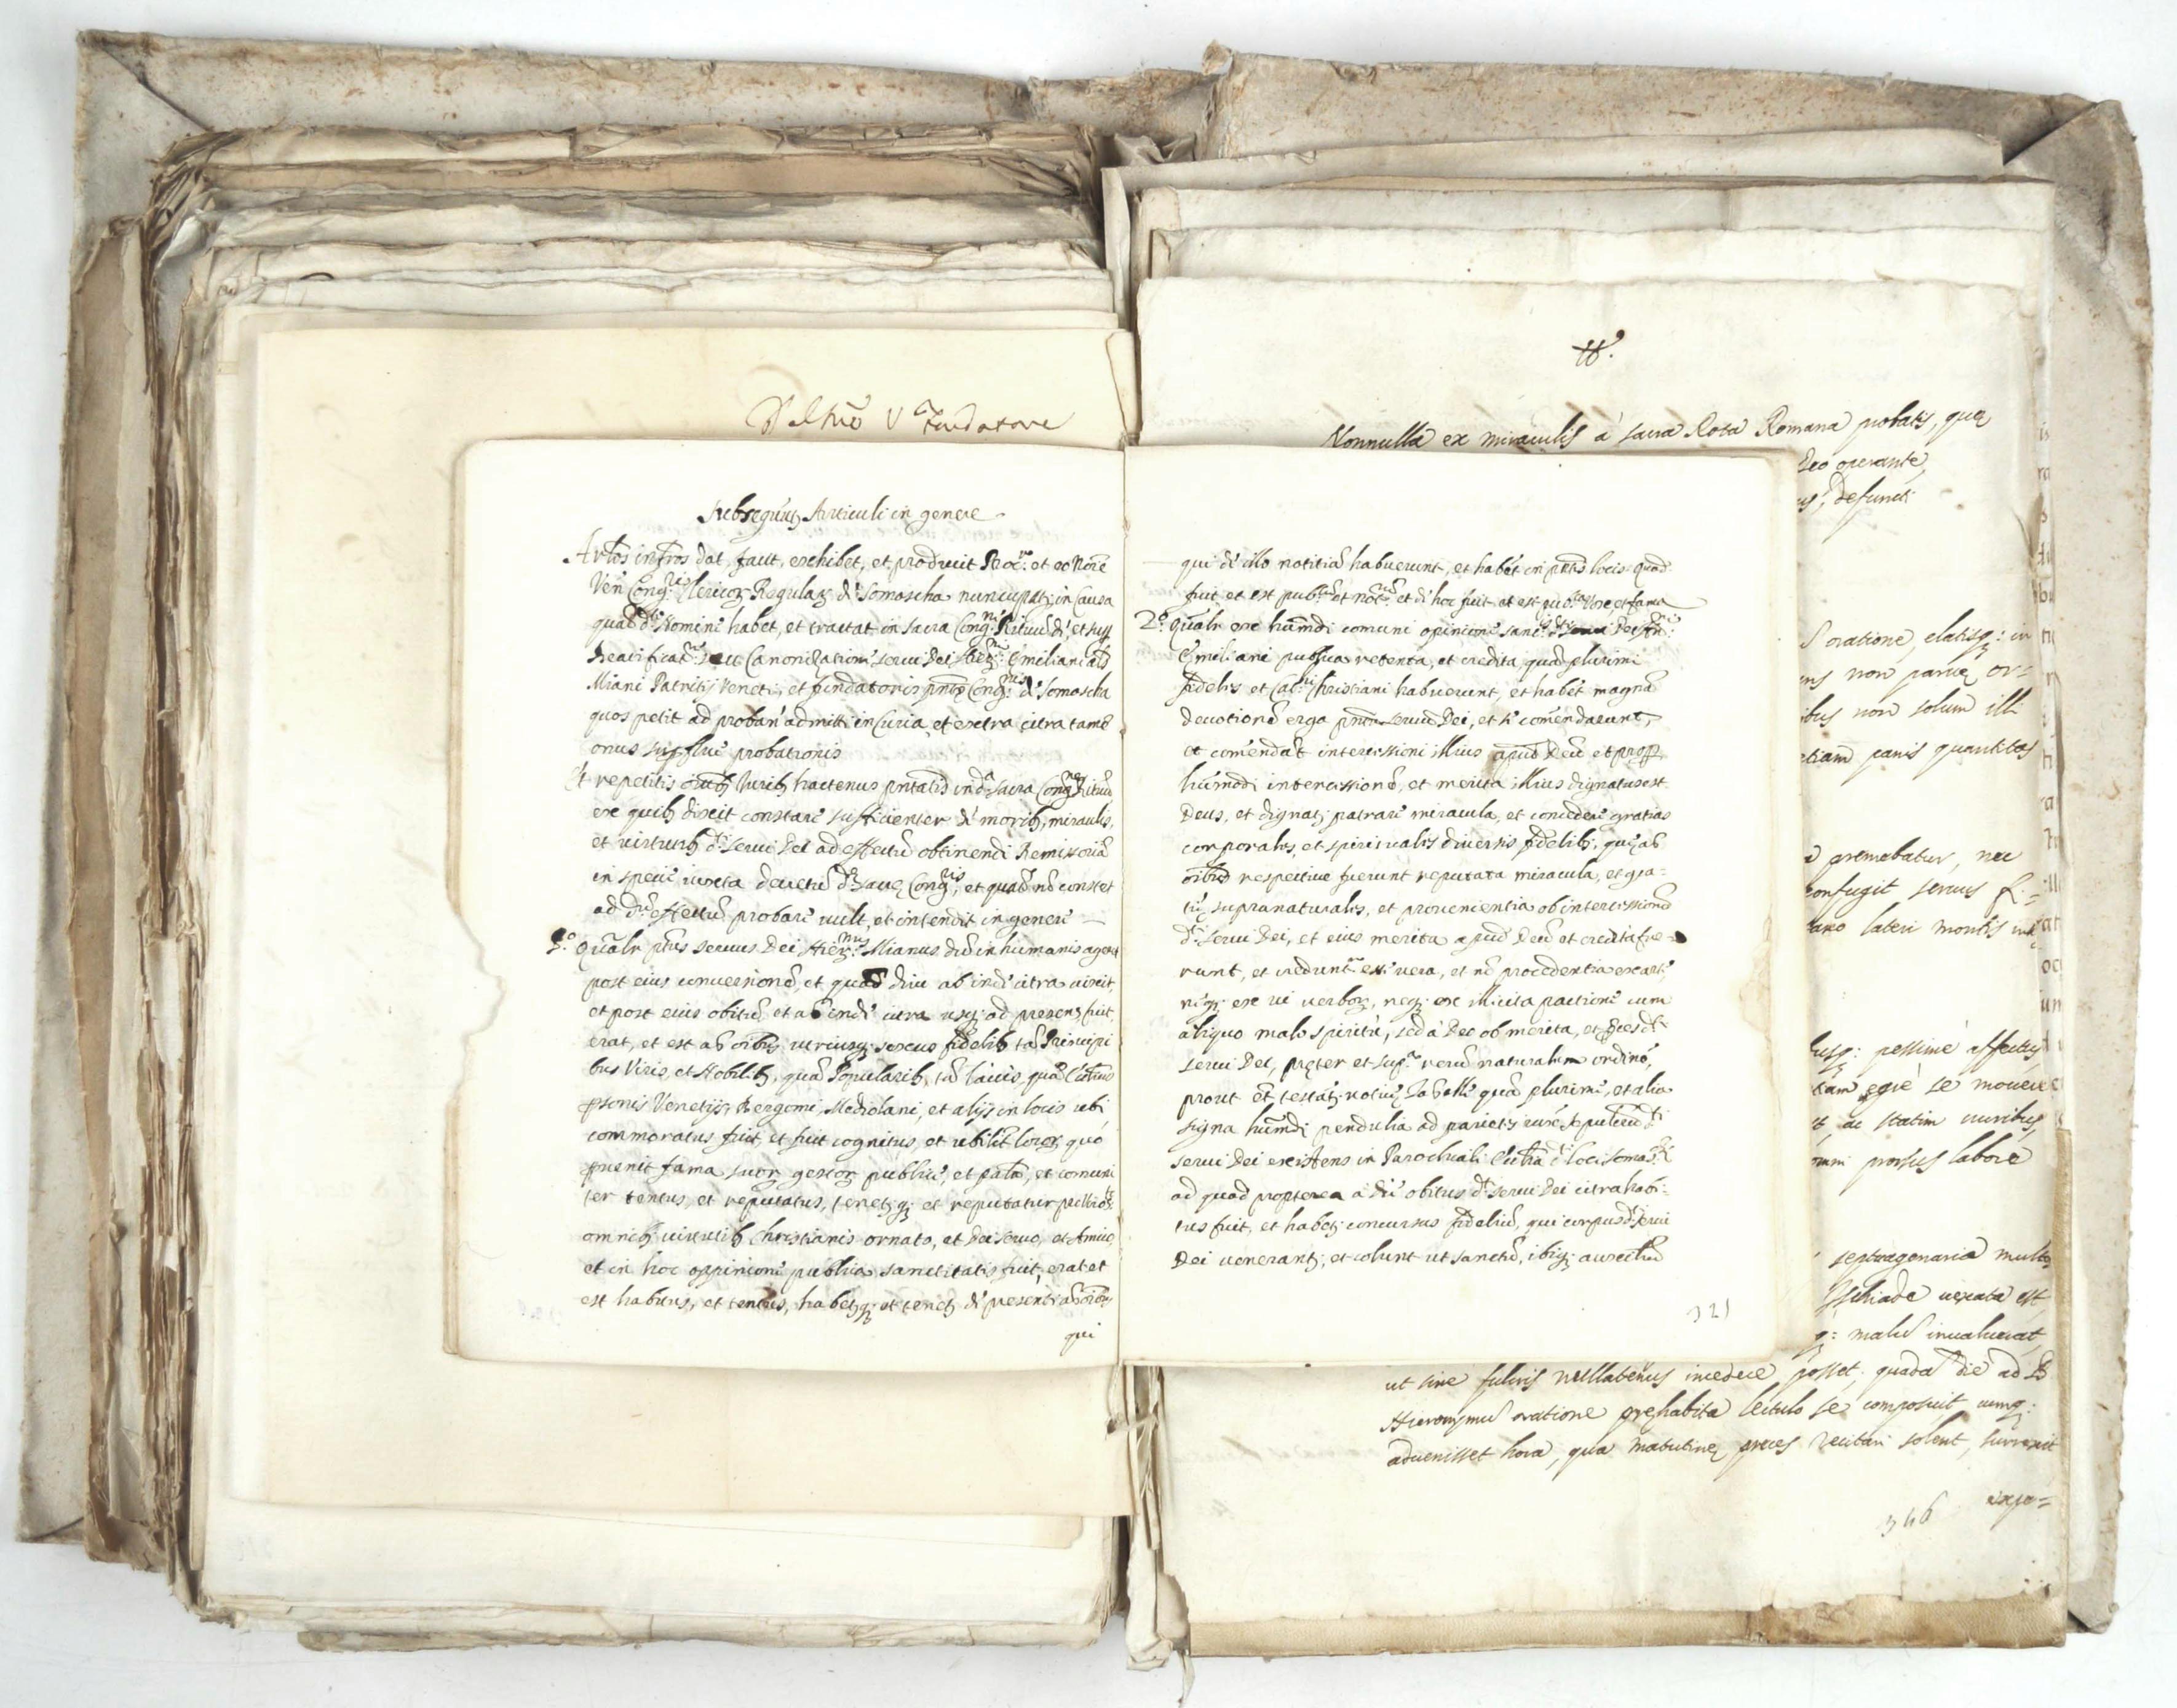 Del Nro V Fundatore
Subsequūt Articuli in genere
Artos infrōs dat, facit, exhibet, et producit Proc.r et eo noīe
Ven Cong.nis Clericoꝝ Regulaꝝ di Somascha nuncupatꝫ in Causa
quā dō Nomine habet, et tractat in sacra Cong.ne Rituū di, et sup
Beatificat.ne seu Canonizatione serui Dei Emiliani als
Miani Patritij Veneti, et fundatoris Cong.nis di Somascha
quos petit ad proban' admitti in Curia, et extra citra tamē
onus superflue probationis
Et repetitis oībꝫ Iuribꝫ hactenus pntatis in dā sacra Cong.ne Rituū
ex quibꝫ dixit constare sufficienter di moribꝫ, miraulis,
et uirtutibꝫ di serui Dei ad effectū obtinendi Remissoriā
in specie iuxta decretū dæ sacræ Cong.nis, et quatꝰ nō constet
ad dū effectū probare uult, et intendit in genere
1.o Qualr ptus seruus Dei Hier.mus Mianus dū in humanis agerꝫ
post eius conuersionē, et quā diu ab inde citra uixit,
et post eius obitū et ab inde citra usqꝫ ad presens fuit,
erat, et est ab oībus utriusqꝫ sexus fidelibꝫ tā Principi
bus Viris, et Nobilibꝫ, quā Popularibꝫ, tā laicis, quā
psonis Venetijs, Bergomi, Mediolani, et alijs in locis ubi
commoratus fuit, et fuit cognitus, et ubilibt locoꝝ quo
puenit fama suoꝝ gestoꝝ publice, et palā, et comuni
ter tentus, et reputatus, tenetꝫ qꝫ et reputatur pro Viro
omnibꝫ uirtutibꝫ Christianis ornato, et Dei seruo, et Amico,
et in hoc oppinione publica sanctitatis fuit, erat et
est habitus, et tentus, habetꝫqꝫ et tenetꝫ di presenti ab oībꝫ
qui
qui di illo notitiā habuerunt, et habēt in pntis locis quod
fuit et est pub.cū et not.m et di hoc fuit et est pub.ca Vox et fama
2.o Qualr ex humdi comuni opinione sanct.tis serui Dei
Emiliani publica retenta, et credita, quod plurimi
fideles et Cat.ci Christiani habuerunt, et habēt magnā
deuotionē erga seruū Dei, et se comendarunt,
et comendāt intercessioni illius apud Deū et propꝫ
humōdi intercessionē, et merita illius dignatus est
Deus, et dignatꝫ patrare miracula, et concedere gratias
corporales, et spirituales diuersis fidelibꝫ, quæ ab
oībus respectiue fuerunt reputata miracula, et gra=
tiæ supranaturales, et prouenientia ob intercessionē
di serui Dei, et eius merita apud Deū et credita fue=
runt, et creduntr esse uera, et nō procedentia ex arte
neqꝫ ex ui uerboꝝ, neqꝫ ex illicita pactione cum
aliquo malo spiritu, sed à Deo ob merita, et preces di
serui Dei, præter et sup.a rerū naturaliūm ordinē,
prout et testātꝫ uotiuæ Tabellæ quā plurimæ, et alia
signa humdi pendulia ad parietes iuxta sepulcrū di
serui Dei existens in Parochiali Ecclia loci Somaschæ
ad quod propterea à die obitus di serui Dei citra habi=
tus fuit, et habetꝫ concursus fideliū, qui corpus di serui
Dei uenerantꝫ, et colunt ut sanctū, ibiqꝫ auxiliū
321
Nonnulla ex miraculis à Sacra Rota Romana probatis, quæ
Deo operante,
us, defuncti
oratione, elatisqꝫ: in
ens non paruæ or=
ibus non solum illi
etiam panis quantitas
premebatur, nec
confugit seruus
lateri montis
usqꝫ: pessime affectus
tam egrè se mouere
ac statim uiribus
omni prorsus labore
septuagenaria multos
Ischiade uexata est
qꝫ: malū inualuerat,
ut sine fulcris nullatenus incedere posset; quadā die ad B
Hieronymū oratione præhabita lectulo se composuit, cumqꝫ:
aduenisset hora, qua matutinæ preces recitari solent, surrexit
expe=
346